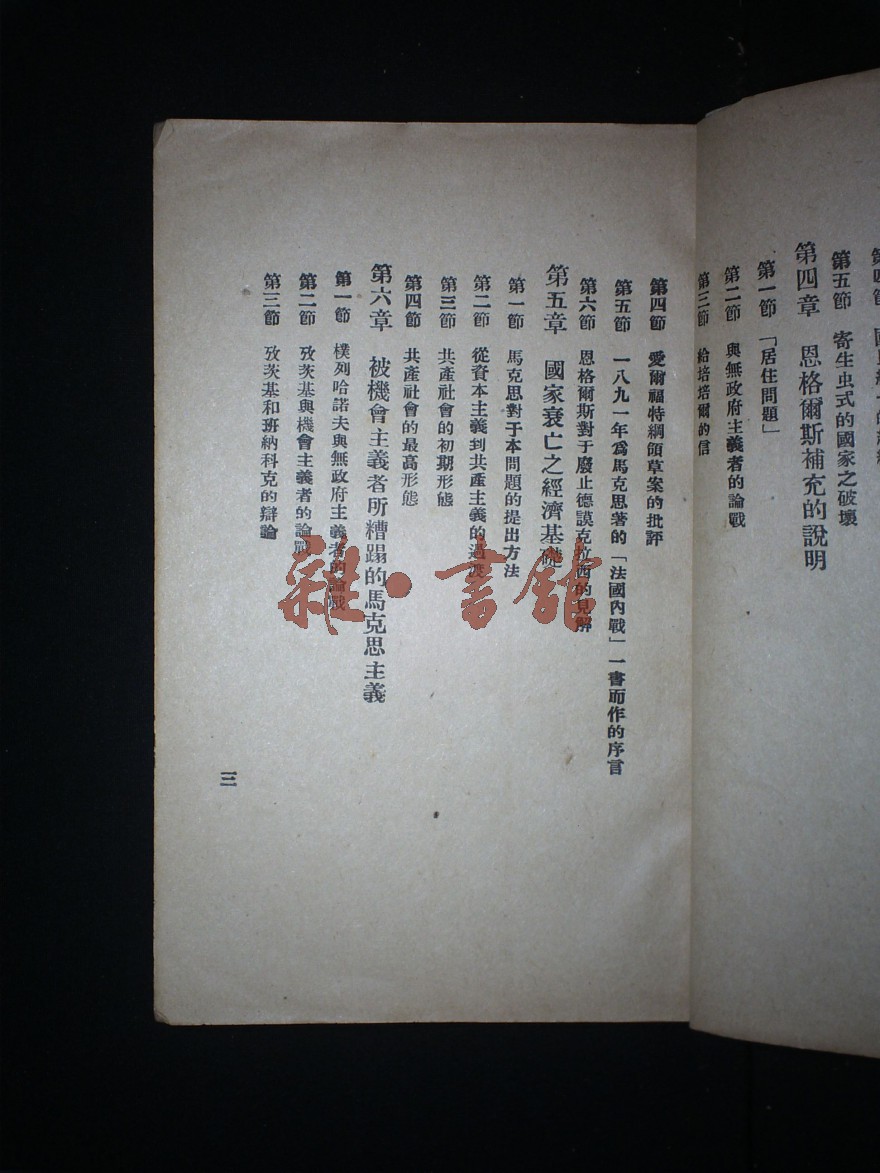 第五節 寄生虫式的國家之破壞
第四章 恩格爾斯補充的說明
第一節 「居住問題」
第二節 與無政府主義者的論戰
第三節 給培培爾的信
第四節 愛爾福特綱領草案的批評
第五節 一八九一年爲馬克思著的「法國內戰」一書而作的序言
第六節 恩格爾斯對于廢止德謨克拉西的見解
第五章 國家衰亡之經濟基礎
第一節 馬克思對于本問題的提出方法
第二節 從資本主義到共產主義的過渡
第三節 共產社會的初期形態
第四節 共產社會的最高形態
第六章 被機會主義者所糟蹋的馬克思主義
第一節 樸列哈諾夫與無政府主義者的論戰
第二節 攷茨基與機會主義者的論戰
第三節 攷茨基和班納科克的辯論
三
雜·書館